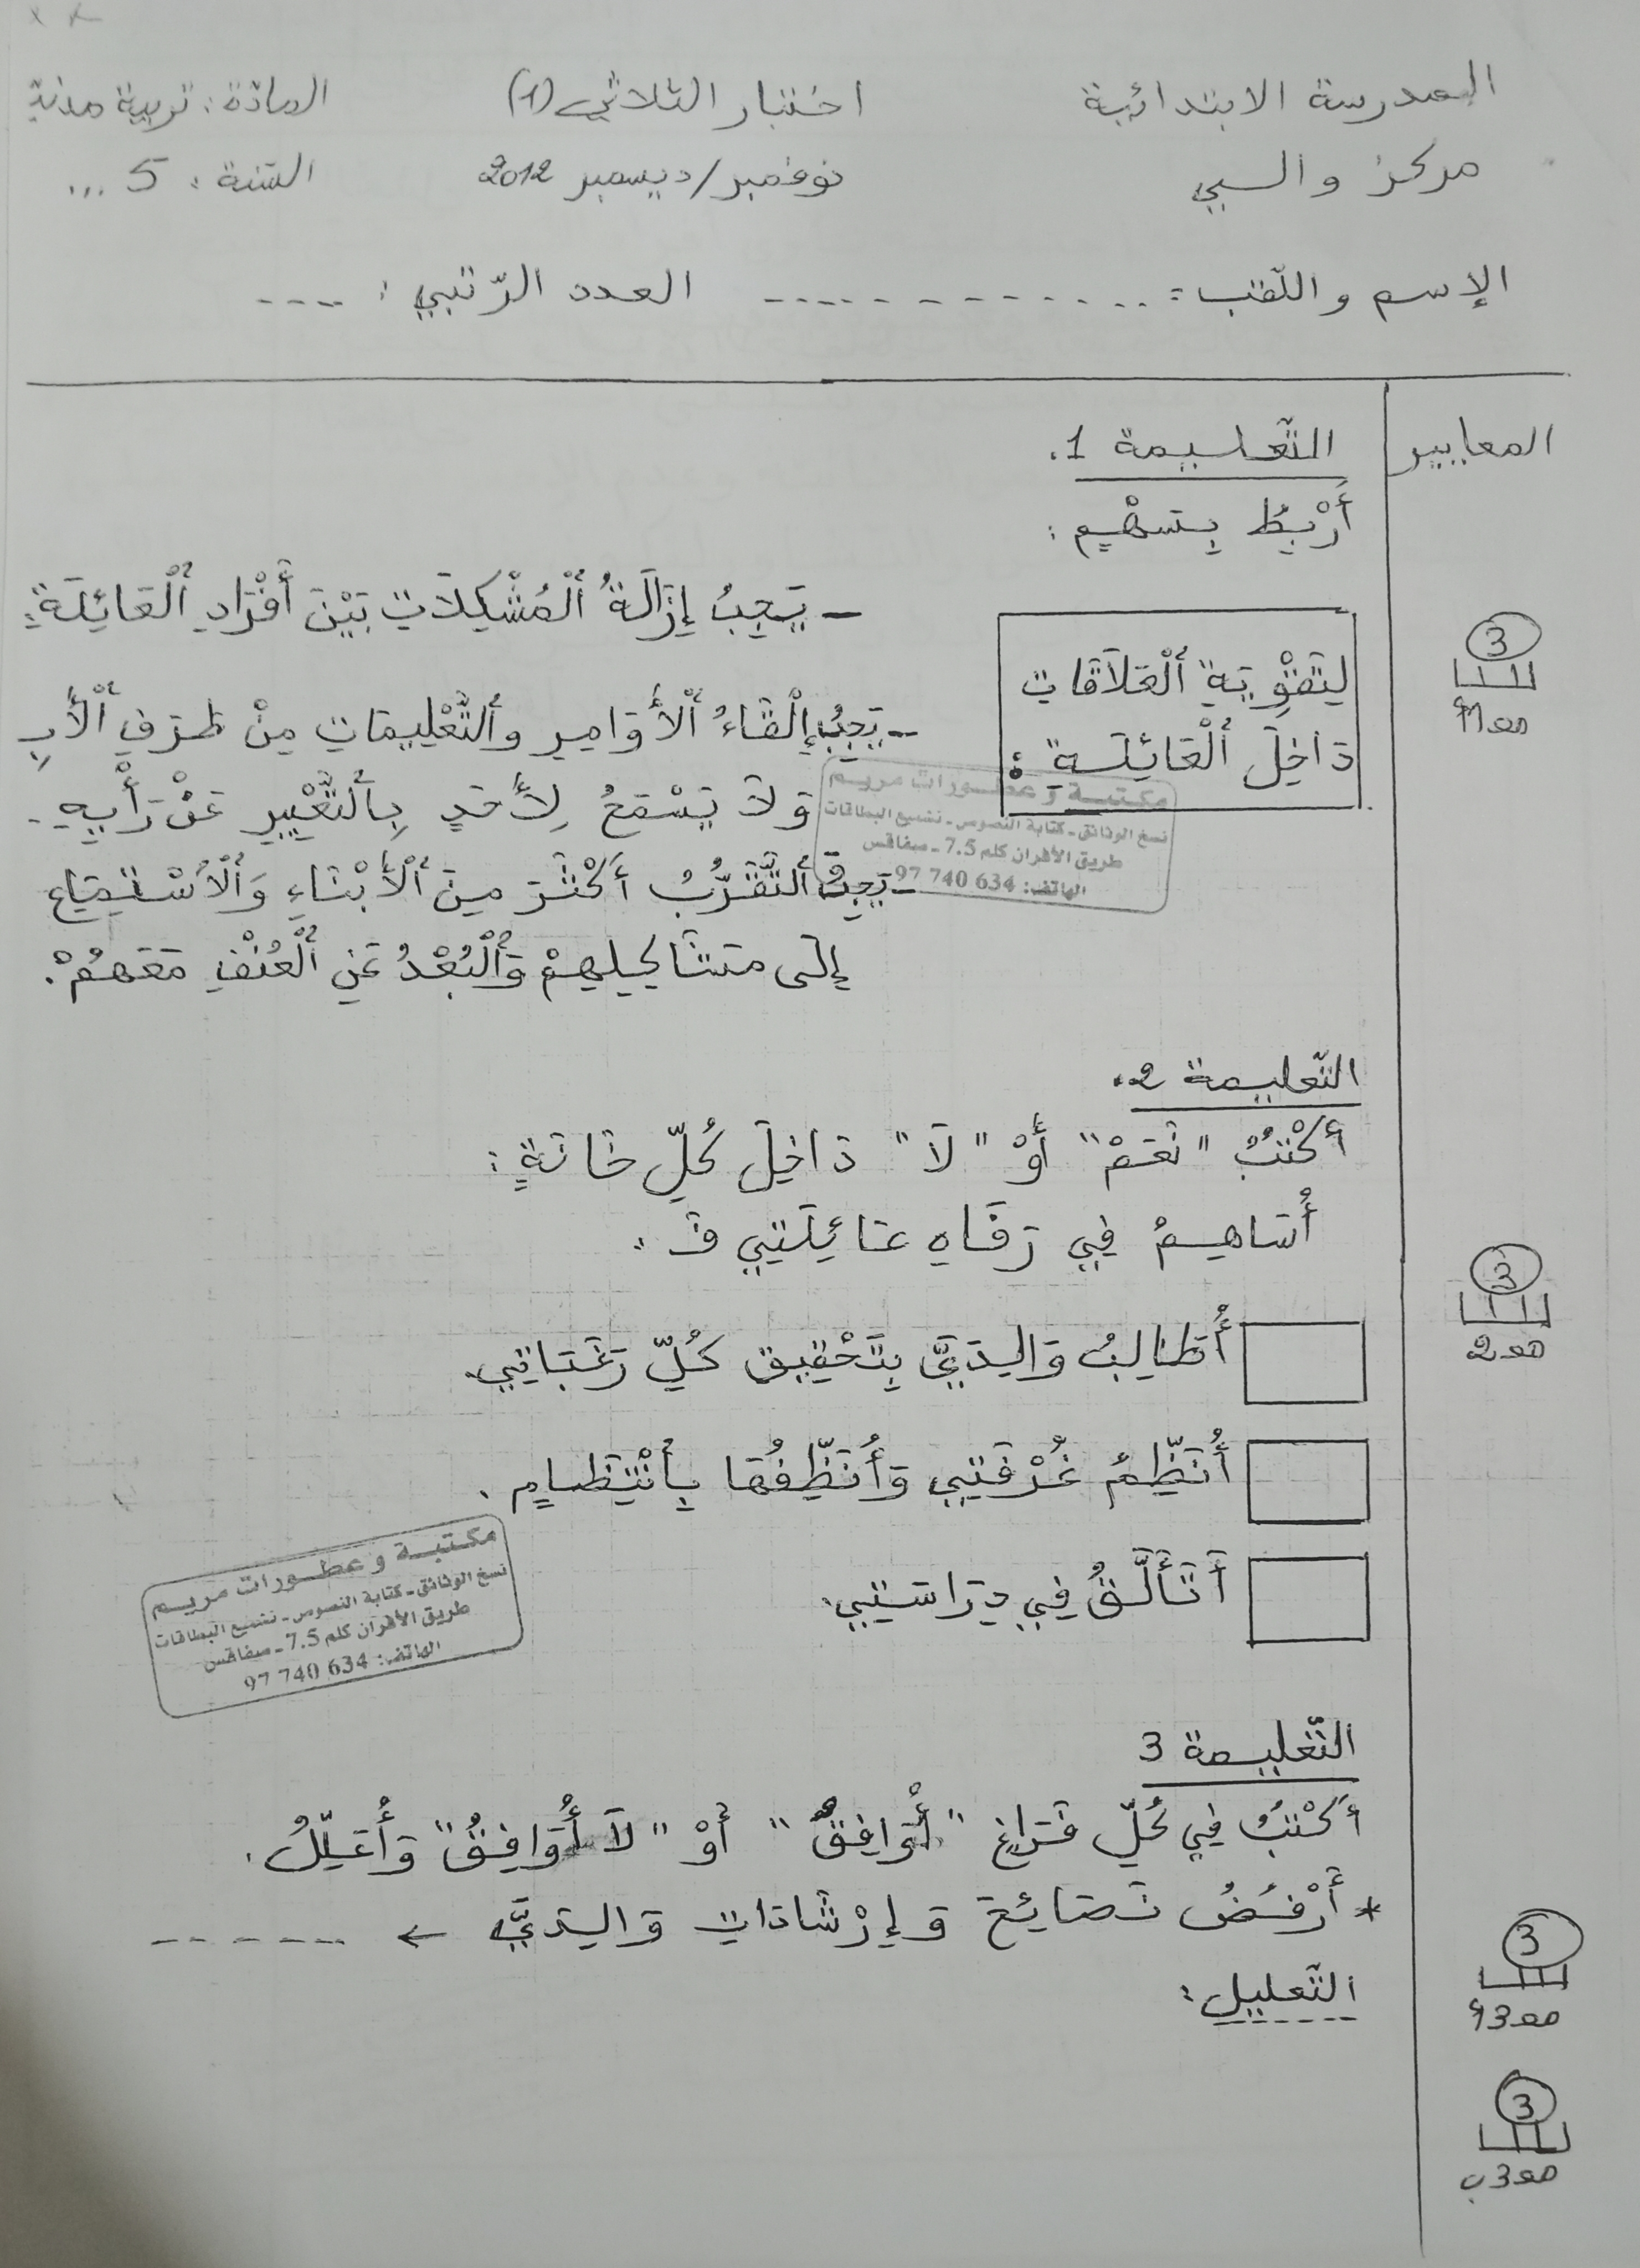 المدرسة الابتدائية
مركز والسي
اختبار الثلاثي (1)
نوفمبر/ديسمبر 2012
المادّة: تربية مدنية
السّنة: 5 ...
الإسم واللّقب: .............. العدد الرّتبي: ....
المعايير
التّعليمة 1.
أَرْبِطُ بِسَهْمٍ:
لِتَقْوِيَةِ ٱلْعَلاَقَاتِ
دَاخِلَ ٱلْعَائِلَةِ:
- يَجِبُ إِزَالَةُ ٱلْمُشْكِلاَتِ بَيْنَ أَفْرَادِ ٱلْعَائِلَةِ.
- يَجِبُ إِلْقَاءُ ٱلْأَوَامِرِ وَٱلتَّعْلِيمَاتِ مِنْ طَرَفِ ٱلْأَبِ
وَلاَ يَسْمَحُ لِأَحَدٍ بِٱلتَّعْبِيرِ عَنْ رَأْيِهِ.
- يَجِبُ ٱلتَّقَرُّبُ أَكْثَرَ مِنَ ٱلْأَبْنَاءِ وَٱلْٱسْتِمَاعِ
إِلَى مَشَاكِلِهِمْ وَٱلْبُعْدُ عَنِ ٱلْعُنْفِ مَعَهُمْ.
3
معـ1أ
مكتبة و عطورات مريم
نسخ الوثائق - كتابة النصوص - تشميع البطاقات
طريق الأفران كلم 7.5 - صفاقس
الهاتف: 634 740 97
التّعليمة 2.
أَكْتُبُ "نَعَمْ" أَوْ "لَا" دَاخِلَ كُلِّ خَانَةٍ:
أُسَاهِمُ فِي رَفَاهِ عَائِلَتِي فَـ:
أُطَالِبُ وَالِدَيَّ بِتَحْقِيقِ كُلِّ رَغَبَاتِي.
أُنَظِّمُ غُرْفَتِي وَأُنَظِّفُهَا بِٱنْتِظَامٍ.
أَتَأَلَّقُ فِي دِرَاسَتِي.
3
معـ2
مكتبة و عطورات مريم
نسخ الوثائق - كتابة النصوص - تشميع البطاقات
طريق الأفران كلم 7.5 - صفاقس
الهاتف: 634 740 97
التّعليمة 3
أَكْتُبُ فِي كُلِّ فَرَاغٍ "أُوَافِقُ" أَوْ "لاَ أُوَافِقُ" وَأُعَلِّلُ.
* أَرْفُضُ نَصَائِحَ وَإِرْشَادَاتِ وَالِدَيَّ ← ......
التّعليل:
3
معـ3أ
3
معـ3ب